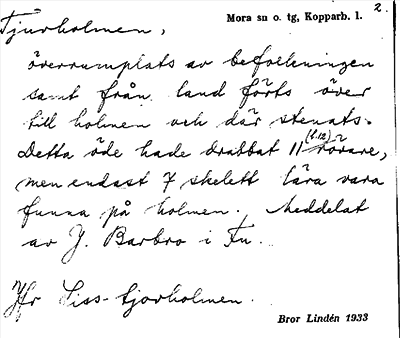 Mora sn o. tg, Kopparb. l.
2.
Tjurholmen,
överrumplats av befolkningen
samt från land förts över
till holmen och där stenats.
(l.12)
Detta öde hade drabbat 11 rövare,
men endast 7 skelett lära vara
funna på holmen. Meddelat
av J. Barbro i Fu.
Jfr Liss-tjorholmen.
Bror Lindén 1933